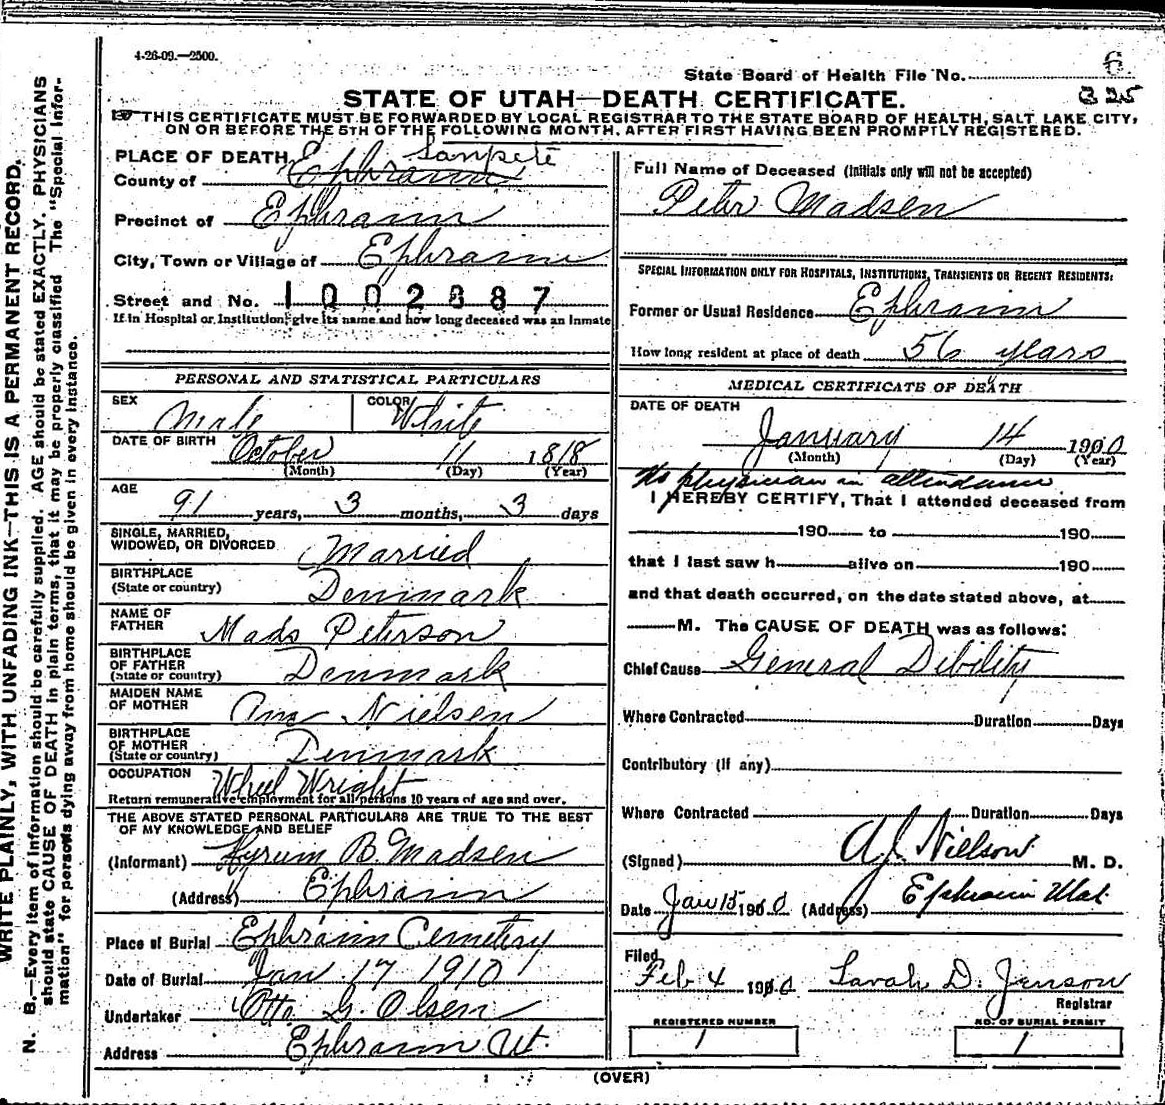 4-26-09.—2500.
State Board of Health File No. 6
325
STATE OF UTAH—DEATH CERTIFICATE.
THIS CERTIFICATE MUST BE FORWARDED BY LOCAL REGISTRAR TO THE STATE BOARD OF HEALTH, SALT LAKE CITY,
ON OR BEFORE THE 5TH OF THE FOLLOWING MONTH, AFTER FIRST HAVING BEEN PROMPTLY REGISTERED.
WRITE PLAINLY, WITH UNFADING INK—THIS IS A PERMANENT RECORD.
N. B.—Every item of information should be carefully supplied. AGE should be stated EXACTLY. PHYSICIANS
should state CAUSE OF DEATH in plain terms, that it may be properly classified. The "Special Infor-
mation" for persons dying away from home should be given in every instance.
PLACE OF DEATH Sanpete
County of Ephraim
Precinct of Ephraim
City, Town or Village of Ephraim
Street and No. 1002887
If in Hospital or Institution, give its name and how long deceased was an Inmate
PERSONAL AND STATISTICAL PARTICULARS
SEX Male COLOR White
DATE OF BIRTH October 11 1818
(Month) (Day) (Year)
AGE
91 years, 3 months, 3 days
SINGLE, MARRIED,
WIDOWED, OR DIVORCED Married
BIRTHPLACE
(State or country) Denmark
NAME OF
FATHER Mads Peterson
BIRTHPLACE
OF FATHER
(State or country) Denmark
MAIDEN NAME
OF MOTHER Ann Nielsen
BIRTHPLACE
OF MOTHER
(State or country) Denmark
OCCUPATION Wheel Wright
Return remunerative employment for all persons 10 years of age and over.
THE ABOVE STATED PERSONAL PARTICULARS ARE TRUE TO THE BEST
OF MY KNOWLEDGE AND BELIEF
(Informant) Hyrum B. Madsen
(Address) Ephraim
Place of Burial Ephraim Cemetery
Date of Burial Jan 17 1910
Undertaker Otto G. Olsen
Address Ephraim Ut.
Full Name of Deceased (Initials only will not be accepted)
Peter Madsen
SPECIAL INFORMATION ONLY FOR HOSPITALS, INSTITUTIONS, TRANSIENTS OR RECENT RESIDENTS:
Former or Usual Residence Ephraim
How long resident at place of death 56 years
MEDICAL CERTIFICATE OF DEATH
DATE OF DEATH
January 14 1910
(Month) (Day) (Year)
No physician in attendance
I HEREBY CERTIFY, That I attended deceased from
190 to 190
that I last saw h alive on 190
and that death occurred, on the date stated above, at
M. The CAUSE OF DEATH was as follows:
Chief Cause General Debility
Where Contracted Duration Days
Contributory (if any)
Where Contracted Duration Days
(Signed) A J Nielson M. D.
Date Jan 15 1910 (Address) Ephraim Utah
Filed
Feb 4 1910 Sarah D. Jenson
Registrar
REGISTERED NUMBER
1
NO. OF BURIAL PERMIT
1
(OVER)